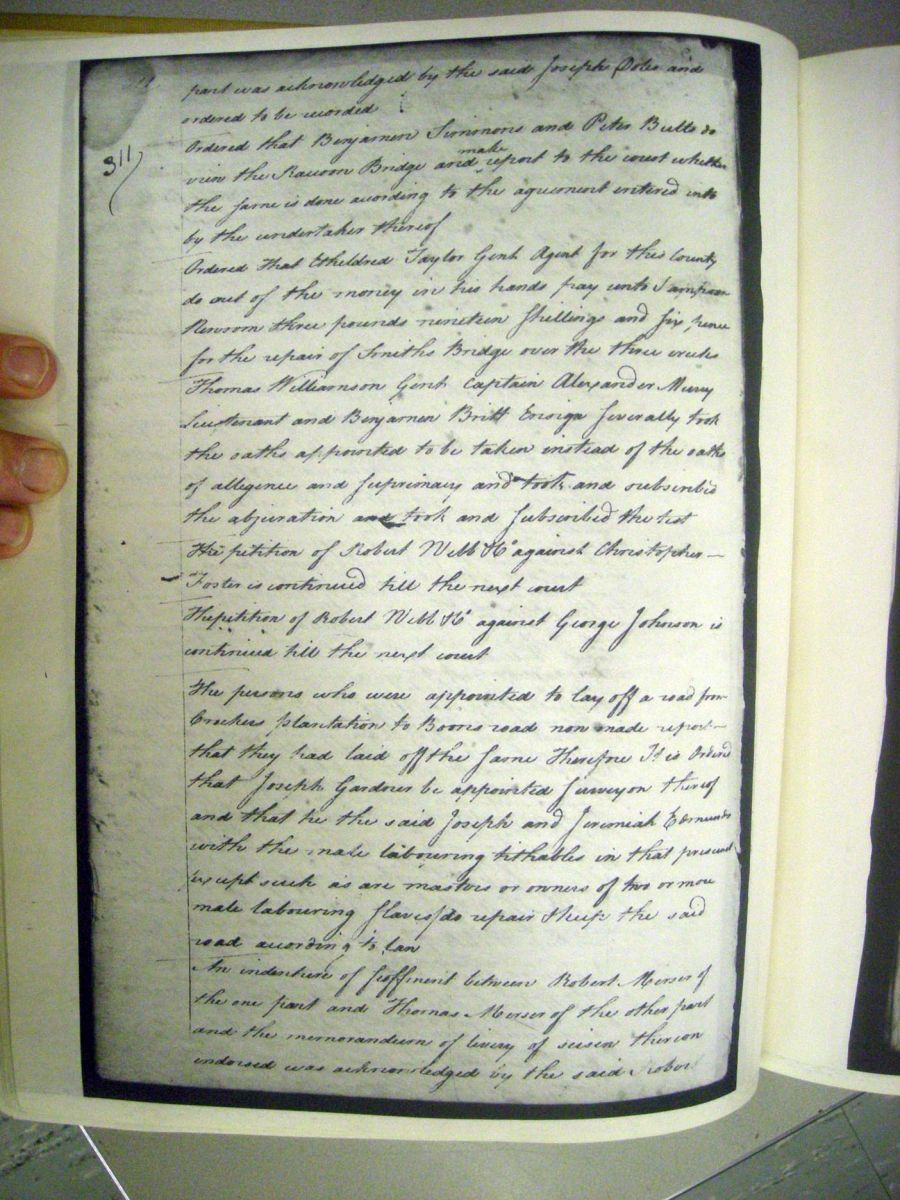 311
part was acknowledged by the said Joseph Doles and
ordered to be recorded
Ordered that Benjamen Simmons and Peter Butts do
view the Racoon Bridge and make report to the court whether
the same is done acording to the agreement entered into
by the undertaker thereof
Ordered that Etheldred Taylor Gent Agent for this County
do out of the money in his hands pay unto Sampson
Newsom three pounds nineteen shillings and six pence
for the repair of Smiths Bridge over the three creeks
Thomas Williamson Gent Captain Alexander Murry
Lieutenant and Benjamen Britt Ensign severally took
the oaths appointed to be taken instead of the oaths
of allegence and suprimacy and took and subscribed
the abjuration and took and subscribed the test
The petition of Robert Webb &c against Christopher
Foster is continued till the next court
The petition of Robert Webb &c against George Johnson is
continued till the next court
The persons who were appointed to lay off a road from
Crockers plantation to Boons road now made report
that they had laid off the same Therefore It is Ordered
that Joseph Gardner be appointed surveyor thereof
and that he the said Joseph and Jeremiah Edmunds
with the male labouring tithables in that precinct
except such as are masters or owners of two or more
male labouring slaves do repair & keep the said
road acording to law
An indenture of feoffment between Robert Merser of
the one part and Thomas Merser of the other part
and the memorandum of livery of seisen thereon
endorsed was acknowledged by the said Robert